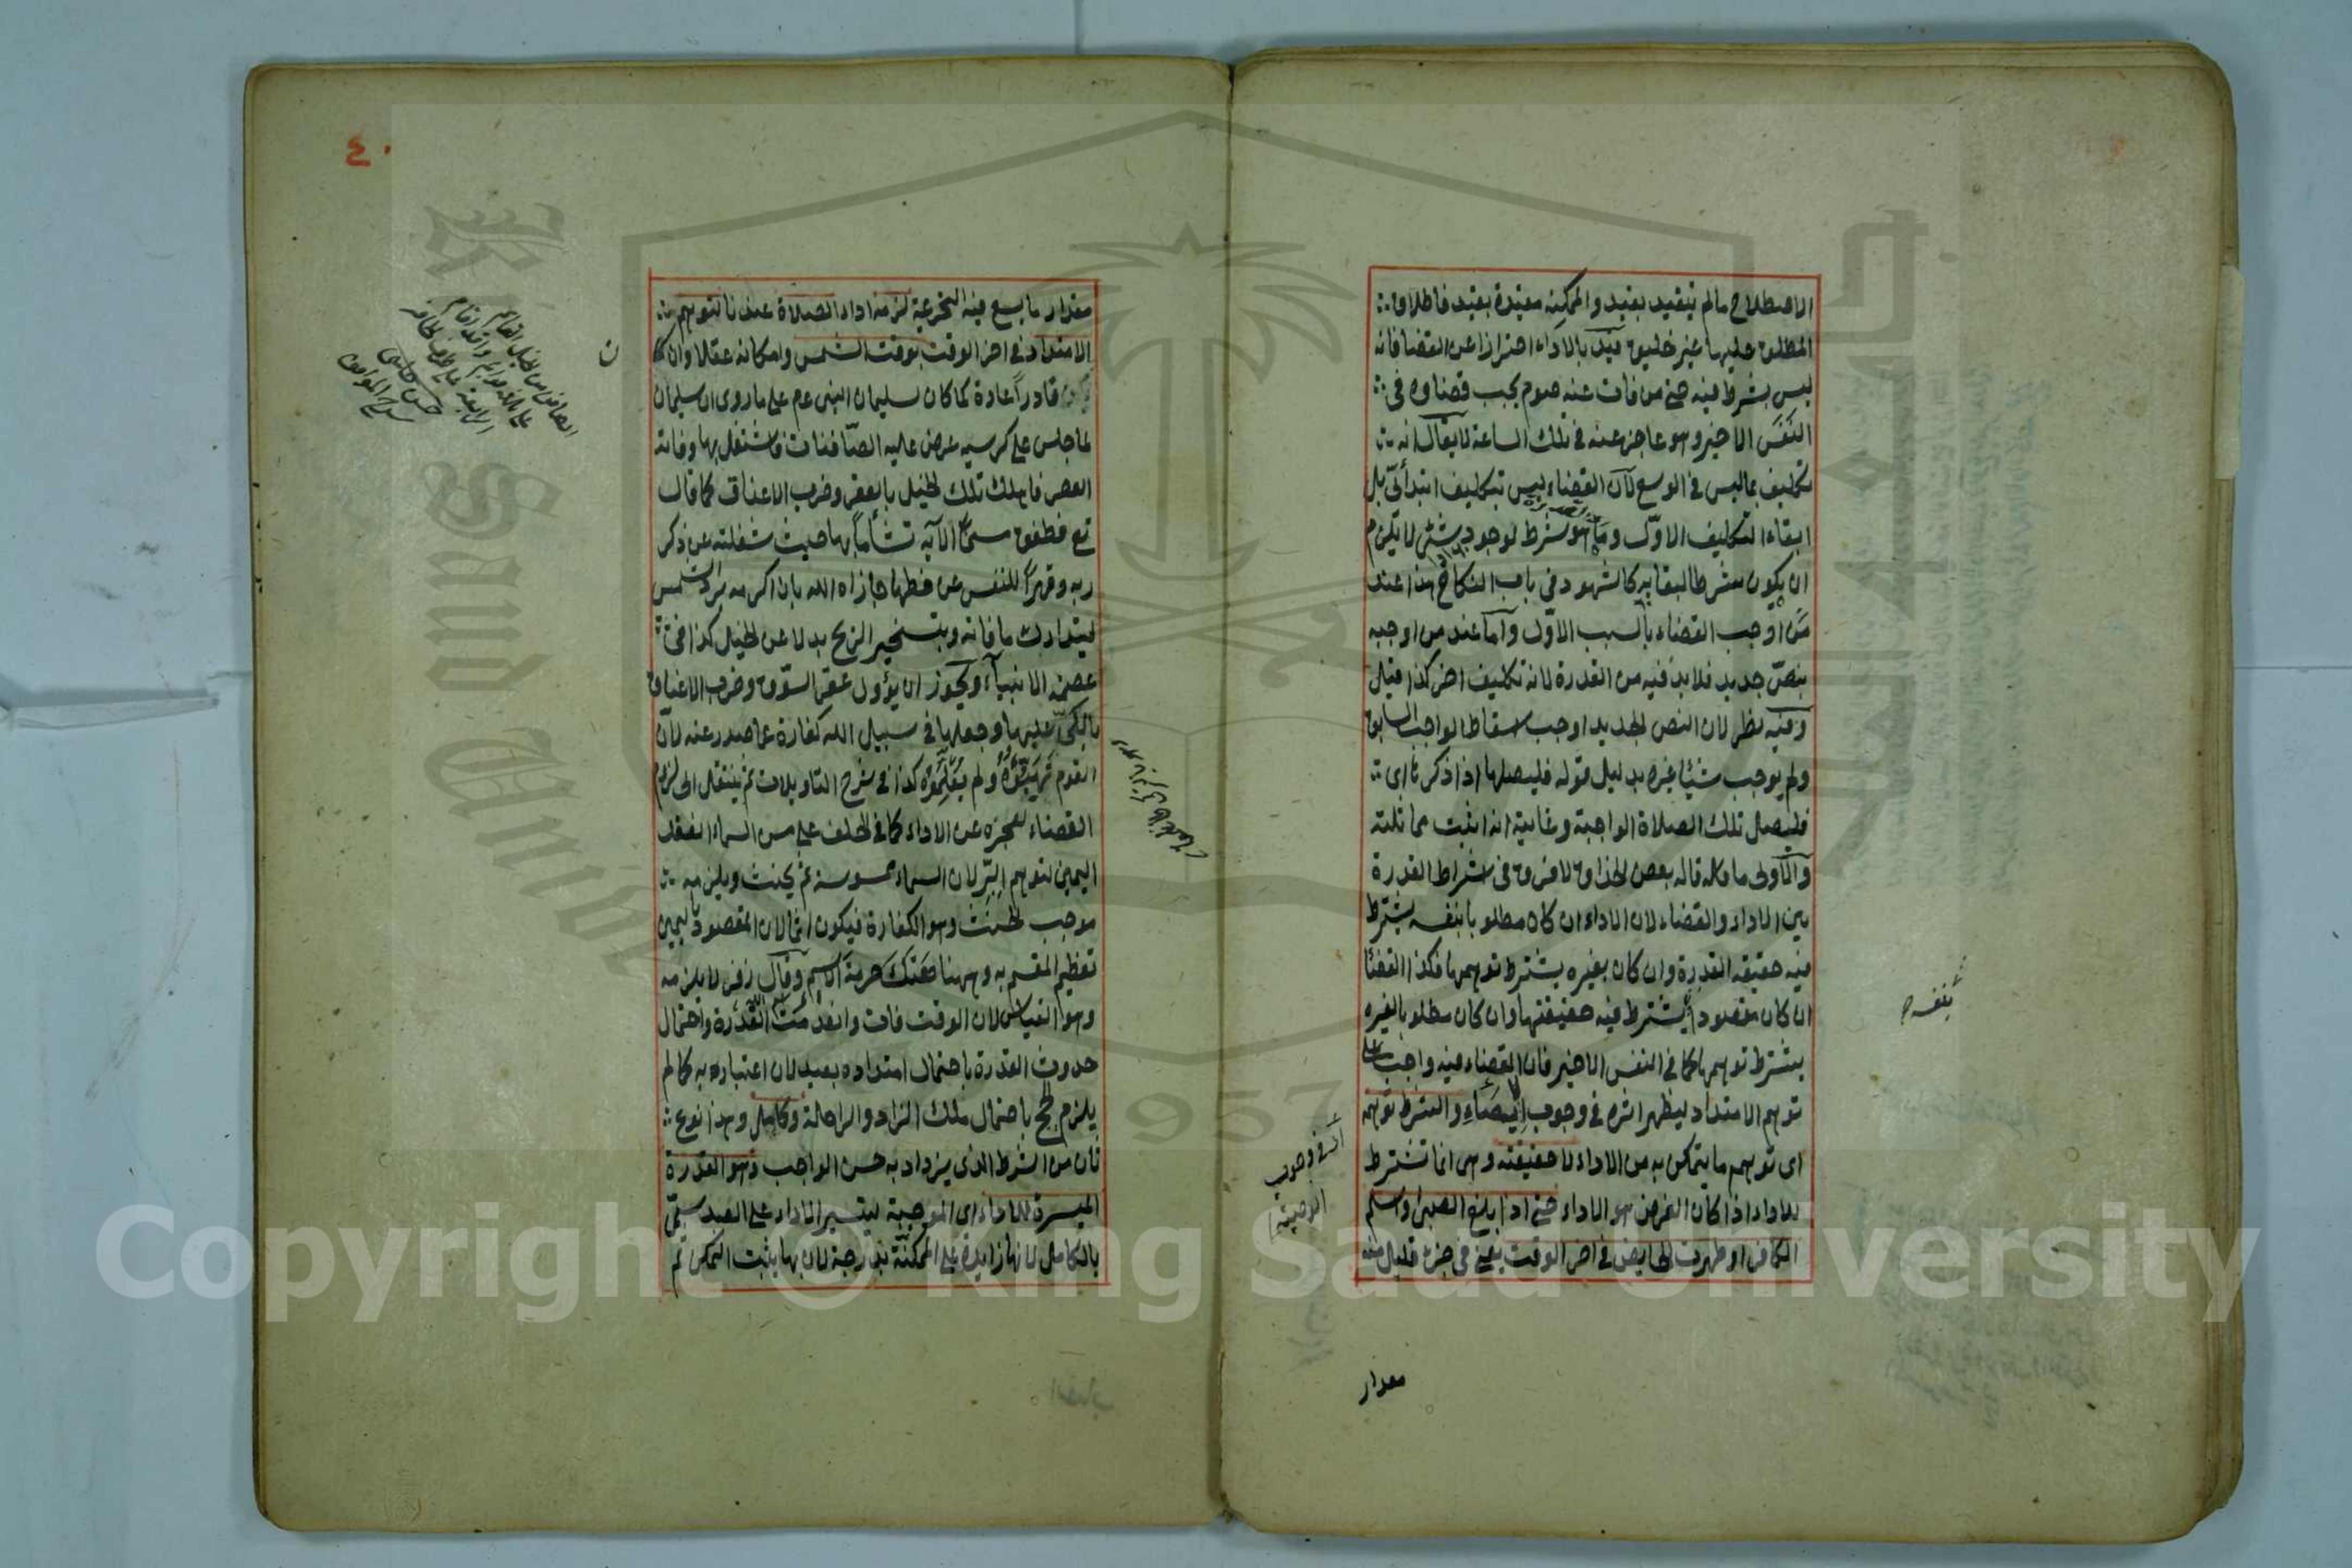 الاصطلاح مالم يتقيد بقيد والممكنة مقيدة بقيد فاطلاق
المطلق عليها غير خليق قيد بالاداء احترازا عن القضا فانه
ليس بشرط فيه حتى من فات عنه صوم يجب قضاوه فى
النفس الاخير وهو عاجز عنه فى تلك الساعة لا يقال انه
تكليف بما ليس فى الوسع لان القضاء ليس بتكليف ابتدائى بل
ابقاء التكليف الاول وما هو شرط لوجود شئ لا يلزم
ان يكون شرطا لبقائه كالشهود فى باب النكاح هذا عند
من اوجب القضاء بالسبب الاول واما عند من اوجبه
بنص جديد فلابد فيه من القدرة لانه تكليف اخر كذا قيل
وفيه نظر لان النص الجديد اوجب اسقاط الواجب السابق
ولم يوجب شيئا غيره بدليل قوله فليصلها اذا ذكرها اى
فليصل تلك الصلاة الواجبة وغايته انه اثبت مماثلته
والاولى ما قاله بعض الحذاق لا فرق فى اشتراط القدرة
بين الاداء والقضاء لان الاداء ان كان مطلوبا بنفسه يشترط
فيه حقيقة القدرة وان كان بغيره يشترط توهمها فكذا القضا
ان كان مقصودا يشترط فيه حقيقتها وان كان مطلوبا لغيره
يشترط توهمها كما فى النفس الاخير فان القضاء فيه واجب
توهم الامتداد ليظهر اثره فى وجوب الايصاء والشرط توهمه
اى توهم ما يتمكن به من الاداء لا حقيقته وهى انما تشترط
للاداء اذا كان الفرض هو الاداء حتى اذا بلغ الصبى او اسلم
الكافر او طهرت الحايض فى اخر الوقت يعنى فى جزء قليل منه
بنفسه
اثره فى وجوب
الوصية
مقدار
٤٠
مقدار ما يسع فيه التحريمة لزمه اداء الصلاة عندنا لتوهم
الامتداد فى اخر الوقت بوقف الشمس وامكانه عقلا وان
قادرا عادة كما كان سليمان النبى عم على ما روى ان سليمان
لما جلس على كرسيه عرض عليه الصافنات فاشتغل بها وفاته
العصر فاهلك تلك الخيل بالعقر وضرب الاعناق كما قال
تع فطفق مسحا الاية تشأما بها حيث شغلته عن ذكر
ربه وقهرا للنفس عن حظها جازاه الله بان اكرمه برد الشمس
ليتدارك ما فاته وبتسخير الريح بدلا عن الخيل كذا فى
عصمة الانبياء ويجوز ان يؤول عقر السوق وضرب الاعناق
بالكى عليها وجعلها فى سبيل الله كفارة عما صدر عنه لان
القوم ولم كذا فى شرح التاويلات ثم ينتقل الى لزوم
القضاء لعجزه عن الاداء كما فى الحلف على مس السماء انعقد
اليمين لتوهم البر لان السماء ممسوسة ثم يحنث ويلزمه
موجب الحنث وهو الكفارة فيكون اثما لان المقصود باليمين
تعظيم المقسم به وههنا هتك حرمة الاسم وقال زفر لا يلزمه
وهو القياس لان الوقت فات وانعدمت القدرة واحتمال
حدوث القدرة باحتمال امتداده بعيد لان اعتباره به كما لم
يلزم الحج باحتمال ملك الزاد والراحلة وكامل وهذا نوع
ثان من الشرط الذى يزداد به حسن الواجب وهو القدرة
الميسرة للاداء اى الموجبة ليتيسر الاداء على العبد سمى
بالكامل لانها زايدة على الممكنة بدرجة لان بها يثبت التمكن ثم
Copyright © King Saud University
1957